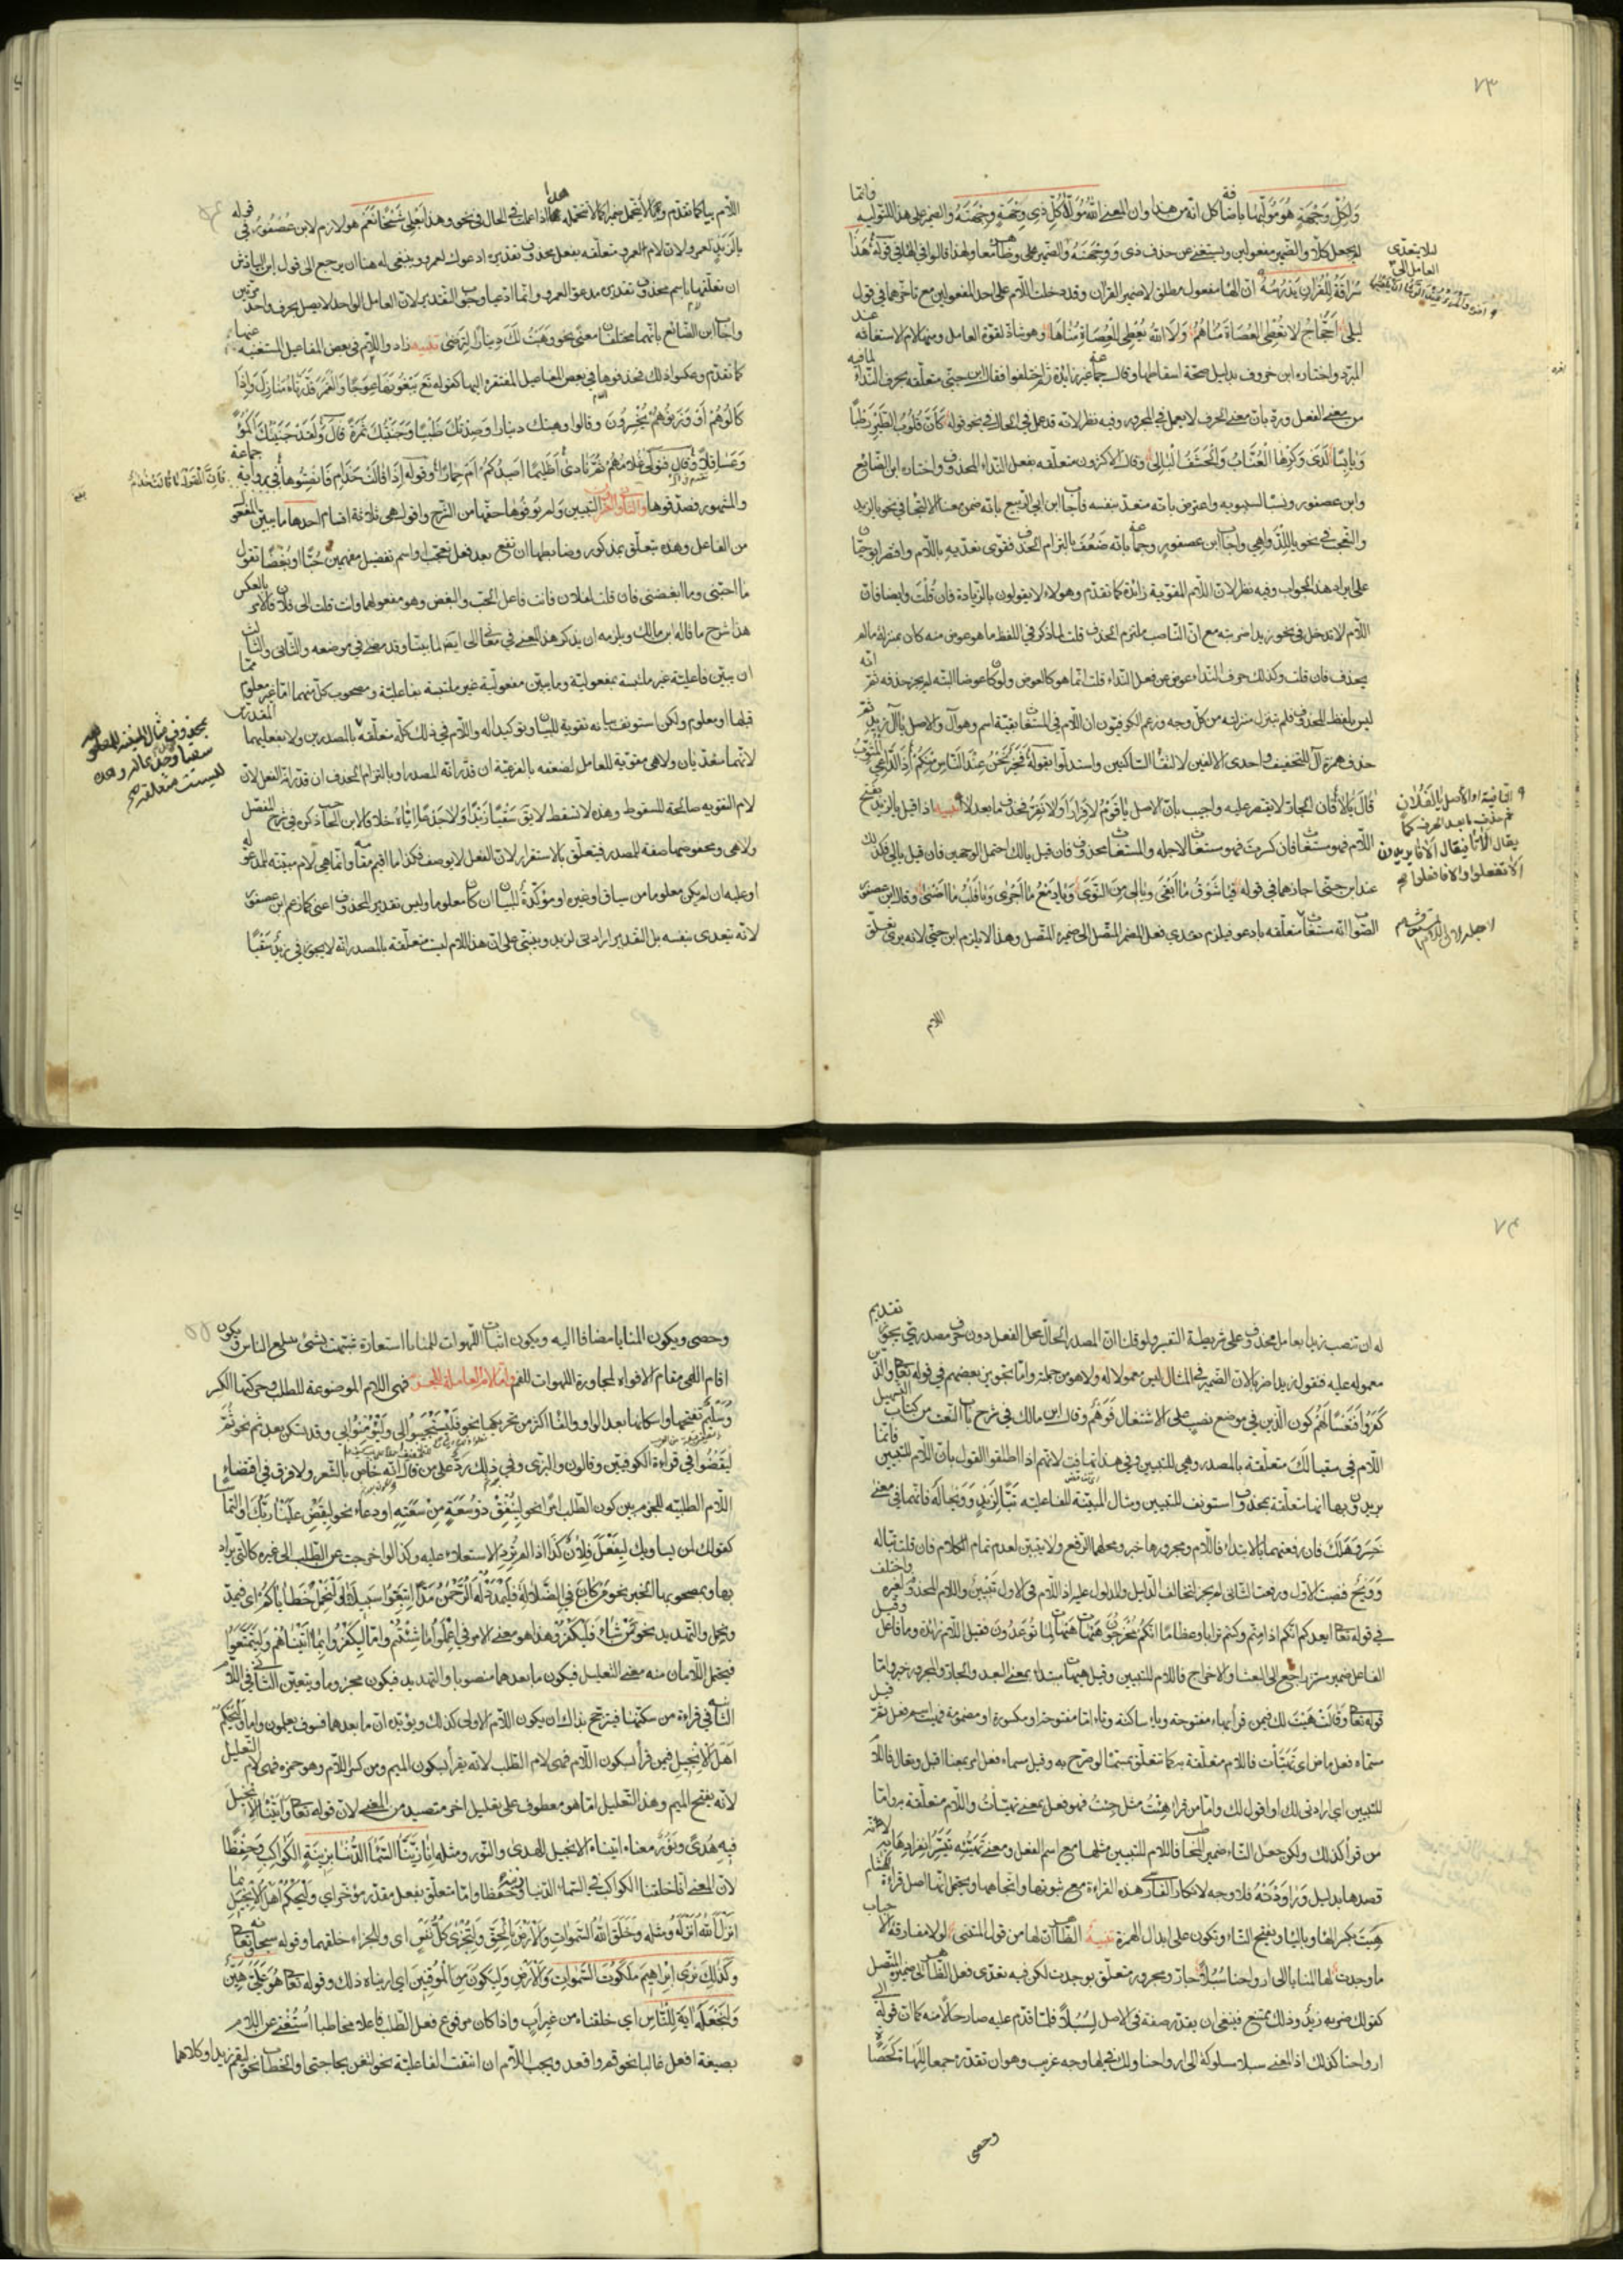 ٧٣
ولكل وجهة هو موليها باضافة كل انه من هذا وان المعنى الله مول كل ذي وجهة وجهته والضمير على هذا للتولية فانما
لم يجعل كلا والضمير مفعولين ويستغنى عن حذف ذي ووجهته
سراقة للقران يدرسه ان الهاء مفعول مطلق لا ضمير القران وقد دخلت اللام على احد المفعولين مع تاخرهما في قول
ليلى احجاج لا تعطي العصاة مناهم ولا الله يعطي العصاة مناها وهو شاذ لقوة العامل ومنها لام الاستغاثة عند
المبرد واختاره ابن خروف بدليل صحة اسقاطها وقال جماعة غير زائدة ثم اختلفوا فقال ابن جني متعلقة بحرف النداء لما فيه
من معنى الفعل ورد بان معنى الحرف لا يعمل في المجرور وفيه نظر لانه قد عمل في الحال في نحو قوله كان قلوب الطير رطبا
ويابسا لدى وكرها العناب والحشف البالي وقال الاكثرون متعلقة بفعل النداء المحذوف واختاره ابن الضائع
وابن عصفور ونسباه لسيبويه واعترض بانه متعد بنفسه فاجاب ابن ابي الربيع بانه ضمن معنى الالتجا في نحو يا لزيد
والتعجب في نحو يا للدواهي واجاب ابن عصفور وجماعة بانه ضعف بالتزام الحذف فقوى تعديه باللام واقتصر ابو حيان
على ايراد هذا الجواب وفيه نظر لان اللام المقوية زائدة كما تقدم وهؤلاء لا يقولون بالزيادة فان قلت وايضا فان
اللام لا تدخل في نحو زيدا ضربته مع ان الناصب ملتزم الحذف قلت لما ذكر في اللفظ ما هو عوض منه كان بمنزلة ما لم
يحذف فان قلت وكذلك حرف النداء عوض من فعل النداء قلت انما هو كالعوض ولو كان عوضا البتة لم يجز حذفه ثم انه
ليس بلفظ المحذوف فلم ينزل منزلته من كل وجه وزعم الكوفيون ان اللام في المستغاث بقية اسم وهو آل والاصل يا آل زيد ثم
حذف همزة آل للتخفيف واحدى الالفين لالتقا الساكنين واستدلوا بقوله فخير نحن عند الناس منكم اذا الداعي المثوب
قال يالا فان الجار لا يقتصر عليه واجيب بان الاصل يا قوم لا فرار او لا نفر فحذف ما بعد لا تنبيه اذا قيل يا لزيد بفتح
اللام فهو مستغاث فان كسرت فهو مستغاث لاجله والمستغاث محذوف فان قيل يا لك احتمل الوجهين فان قيل يا لي فكذلك
عند ابن جني اجازهما في قوله فيا شوق ما ابقى ويا لي من النوى ويا دمع ما اجرى ويا قلب ما اصبى وقال ابن عصفور
الصواب انه مستغاث متعلقة بادعو فيلزم تعدي فعل المضمر المتصل الى ضميره المتصل وهذا لا يلزم ابن جني لانه يرى تعلق
اللام
لئلا يتعدى
العامل الى
اللام بيا كما تقدم ويا لا تحتمل ضميرا كما لا تحتمله ها اذا عملت في الحال في نحو وهذا بعلي شيخا نعم هو لازم لابن عصفور في قوله
يا لزيد لعمرو لان لام لعمرو متعلقة بفعل محذوف تقديره ادعوك لعمرو وينبغي له هنا ان يرجع الى قول ابن الباذش
ان تعلقها باسم محذوف تقديره مدعوا لعمرو وانما ادعيا وجوب التقدير لان العامل الواحد لا يصل بحرف واحد مرتين
واجاب ابن الضائع بانهما مختلفان معنى نحو وهبت لك دينارا لترضى تنبيه زادوا اللام في بعض المفاعيل المستغنية عنها
كما تقدم وعكسوا ذلك فحذفوها في بعض المفاعيل المفتقرة اليها كقوله تع تبغونها عوجا والقمر قدرناه منازل واذا
كالوهم او وزنوهم يخسرون وقالوا وهبتك دينارا وصدتك ظبيا وجنيتك ثمرة قال ولقد جنيتك اكموا
وعساقلا وقال فتولى غلامهم ثم نادى اظليما اصيدكم ام حمارا وقوله اذا قالت حذام فانصتوها في رواية جماعة
والمشهور فصدقوها والثاني والعشرون التبيين ولم يوفوها حقها من الشرح واقول هي ثلاثة اقسام احدها ما يبين المفعول
من الفاعل وهذه تتعلق بمذكور وضابطها ان تقع بعد فعل تعجب او اسم تفضيل مفهمين حبا او بغضا تقول
ما احبني وما ابغضني فان قلت لفلان فانت فاعل الحب والبغض وهو مفعولهما وان قلت الى فلان فالامر بالعكس
هذا شرح ما قاله ابن مالك ويلزمه ان يذكر هذا المعنى في معاني الى ايضا لما بينا وقد مضى في موضعه والثاني والثالث
ان يبين فاعلية غير ملتبسة بمفعولية وما يبين مفعولية غير ملتبسة بفاعلية ومصحوب كل منهما اما غير معلوم مما
قبلها او معلوم ولكن استؤنف بيانه تقوية للبيان وتوكيدا له واللام في ذلك كله متعلقة
لانهما متعديان ولا هي مقوية للعامل لضعفه بالفرعية ان قدر انه المصدر او بالتزام الحذف ان قدر انه الفعل لان
لام التقوية صالحة للسقوط وهذه لا تسقط لا يقال سقيا زيدا ولا جدعا اياه خلافا لابن الحاجب ذكره في شرح المفصل
ولا هي ومخفوضها صفة للمصدر فيتعلق بالاستقرار لان الفعل لا يوصف فكذا ما اقيم مقامه وانما هي لام مبينة للمدعو له
او عليه ان لم يكن معلوما من سياق او غيره او مؤكدة للبيان ان كان معلوما وليس تقدير المحذوف اعني كما زعم ابن عصفور
لانه يتعدى بنفسه بل التقدير ارادتي لزيد وينبني على ان هذه اللام ليست متعلقة بالمصدر انه لا يجوز في زيد سقيا
٧٤
له ان تنصب زيدا بعامل محذوف على شريطة التفسير ولو قلنا ان المصدر الحال محل الفعل دون حرف مصدري يجوز تقديم
معموله عليه فتقول زيدا ضربا لان الضمير في المثال ليس معمولا له ولا هو من جملته واما تجويز بعضهم في قوله تعالى والذين
كفروا فتعسا لهم كون الذين في موضع نصب على الاشتغال فوهم وقال ابن مالك في شرح باب النعت من كتاب التسهيل
اللام في سقيا لك متعلقة بالمصدر وهي للتبيين وفي هذا تهافت لانهم اذا اطلقوا القول بان اللام للتبيين فانما
يريدون بها انها متعلقة بمحذوف استؤنف للتبيين ومثال المبينة للفاعلية تبا لزيد وويحا له فانهما في معنى
خسر وهلك فان رفعتهما بالابتداء فاللام ومجرورها خبر ومحلهما الرفع ولا تبيين لعدم تمام الكلام فان قلت تبا له
وويح فنصبت الاول ورفعت الثاني لم يجز لتخالف الدليل والمدلول عليه اذ اللام في الاول للتبيين واللام المحذوف لغيره واختلف
في قوله تعالى ايعدكم انكم اذا متم وكنتم ترابا وعظاما انكم مخرجون هيهات هيهات لما توعدون فقيل اللام زائدة وما فاعل وقيل
الفاعل ضمير مستتر راجع الى البعث والاخراج فاللام للتبيين وقيل هيهات مبتدا بمعنى البعد والجار والمجرور خبر واما
قوله تعالى وقالت هيت لك فيمن قرا بهاء مفتوحة وياء ساكنة وتاء اما مفتوحة او مكسورة او مضمومة فهيت اسم فعل ثم قيل
مسماه فعل ماض اي تهيات فاللام متعلقة به كما تتعلق بمسماه لو صرح به وقيل مسماه فعل امر بمعنى اقبل وتعال فاللام
للتبيين اي ارادتي لك او اقول لك واما من قرا هئت مثل جئت فهو فعل بمعنى تهيات واللام متعلقة به واما
من قرا كذلك ولكن جعل التاء ضمير المخاطب فاللام للتبيين مثلها مع اسم الفعل ومعنى تهيئه تيسر انفرادها به لا انه
قصدها بدليل وراودته فلا وجه لانكار الفارسي هذه القراءة مع ثبوتها واتجاهها ويحتمل انها اصل قراءة هشام
هيت بكسر الهاء وبالياء وبفتح التاء وتكون على ابدال الهمزة تنبيه الظاهر ان لها من قول المتنبي لولا مفارقة الاحباب
ما وجدت لها المنايا الى ارواحنا سبلا جار ومجرور متعلق بوجدت لكن فيه تعدي فعل الظاهر الى ضميره المتصل
كقولك ضربه زيد وذلك ممتنع فينبغي ان يقدر صفة في الاصل لسبلا فلما قدم عليه صار حالا منه كما ان قوله الى
ارواحنا كذلك اذ المعنى سبلا مسلوكة الى ارواحنا ولك في لها وجه غريب وهو ان تقدره جمعا للهاة كحصاة
وحصى
وحصى ويكون المنايا مضافا اليه ويكون اثبات اللهوات للمنايا استعارة شبهت بشئ يبتلع الناس ويكون
اقام اللهى مقام الافواه لمجاورة اللهوات للفم واما اللام العاملة للجزم فهي اللام الموضوعة للطلب وحركتها الكسر
وسليم تفتحها واسكانها بعد الواو والفا اكثر من تحريكها نحو فليستجيبوا لي وليؤمنوا بي وقد تسكن بعد ثم نحو ثم
ليقضوا في قراءة الكوفيين وقالون والبزي وفي ذلك رد على من قال انه خاص بالشعر ولا فرق في اقتضاء
اللام الطلبية للجزم بين كون الطلب امرا نحو لينفق ذو سعة من سعته او دعاء نحو ليقض علينا ربك او التماسا
كقولك لمن يساويك ليفعل فلان كذا اذا لم ترد الاستعلاء عليه وكذا لو اخرجت عن الطلب الى غيره كالتي يراد
بها وبمصحوبها الخبر نحو من كان في الضلالة فليمدد له الرحمن مدا اتبعوا سبيلنا ولنحمل خطاياكم اي فيمد
ونحمل والتهديد نحو من شاء فليكفر وهذا هو معنى الامر في اعملوا ما شئتم واما ليكفروا بما اتيناهم وليتمتعوا
فيحتمل اللامان منه معنى التعليل فيكون ما بعدهما منصوبا والتهديد فيكون مجزوما ويتعين الثاني في اللام
الثانية في قراءة من سكنها فيترجح بذلك ان يكون اللام الاولى كذلك ويؤيده ان ما بعدهما فسوف يعلمون واما وليحكم
اهل الانجيل فمن قرا بسكون اللام فهي لام الطلب لانه يقرا بسكون الميم ومن كسر اللام وهو حمزة فهي لام التعليل
لانه يفتح الميم وهذا التعليل اما هو معطوف على تعليل اخر متصيد من المعنى لان قوله تعالى واتيناه الانجيل
فيه هدى ونور معناه اتيناه الانجيل للهدى والنور ومثله انا زينا السماء الدنيا بزينة الكواكب وحفظا
لان المعنى انا خلقنا الكواكب في السماء الدنيا زينة وحفظا واما متعلق بفعل مقدر مؤخر اي وليحكم اهل الانجيل بما
انزل الله انزله ومثله وخلق الله السموات والارض بالحق ولتجزى كل نفس اي وللجزاء خلقهما وقوله سبحانه تعالى
وكذلك نري ابراهيم ملكوت السموات والارض وليكون من الموقنين اي اريناه ذلك وقوله تعالى هو علي هين
ولنجعله اية للناس اي خلقناه من غير اب واذا كان مرفوع فعل الطلب فاعلا مخاطبا استغني عن اللام
بصيغة افعل غالبا نحو قم واقعد ويجب اللام ان انتفت الفاعلية نحو لتعن بحاجتي او الخطاب نحو ليقم زيد او كلاهما